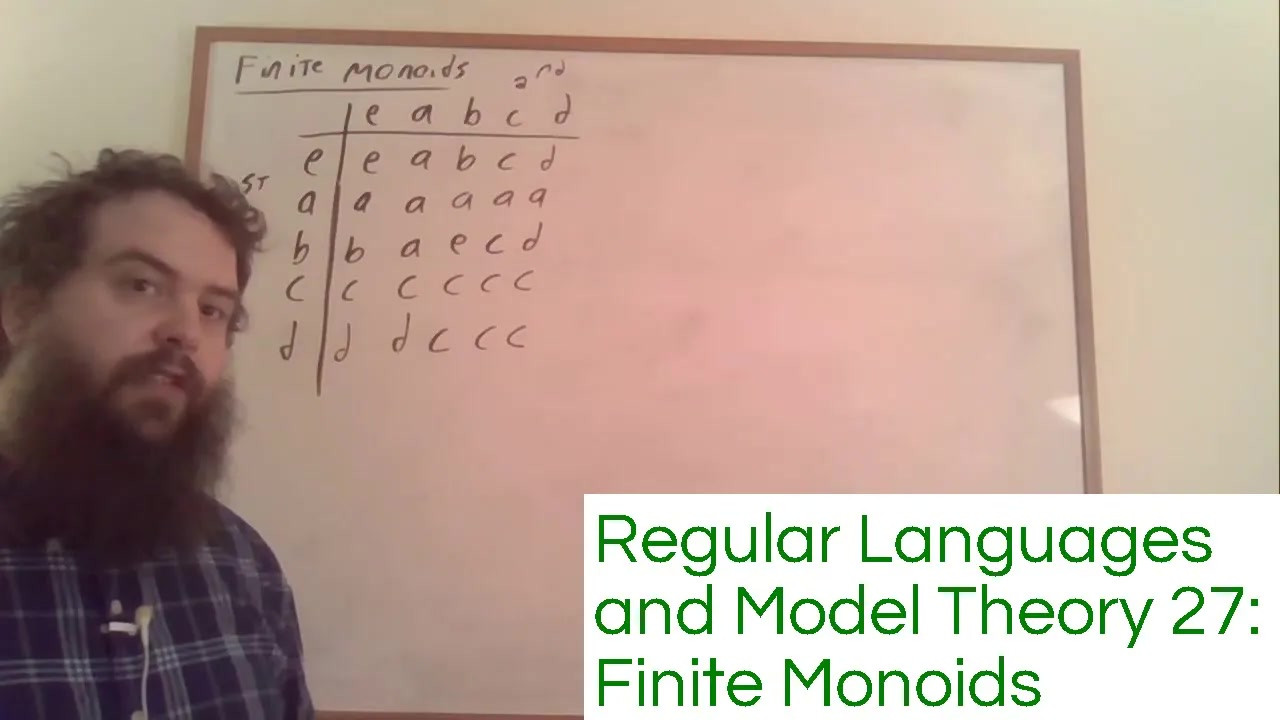 Finite Monoids
2nd
e a b c d
e e a b c d
ST
a a a a a a
b b a e c d
c c c c c c
d d d c c c
Regular Languages
and Model Theory 27:
Finite Monoids